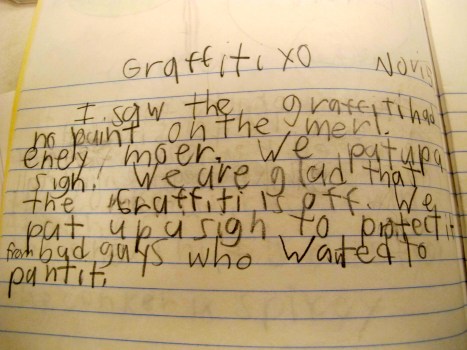 Graffiti XO Nov 13
I saw the graffiti had
no paint on the merl.
enely moer. We put up a
sign. We are glad that
the Graffiti is off. We
put up a sign to protect it
from bad guys who wanted to
pant it.